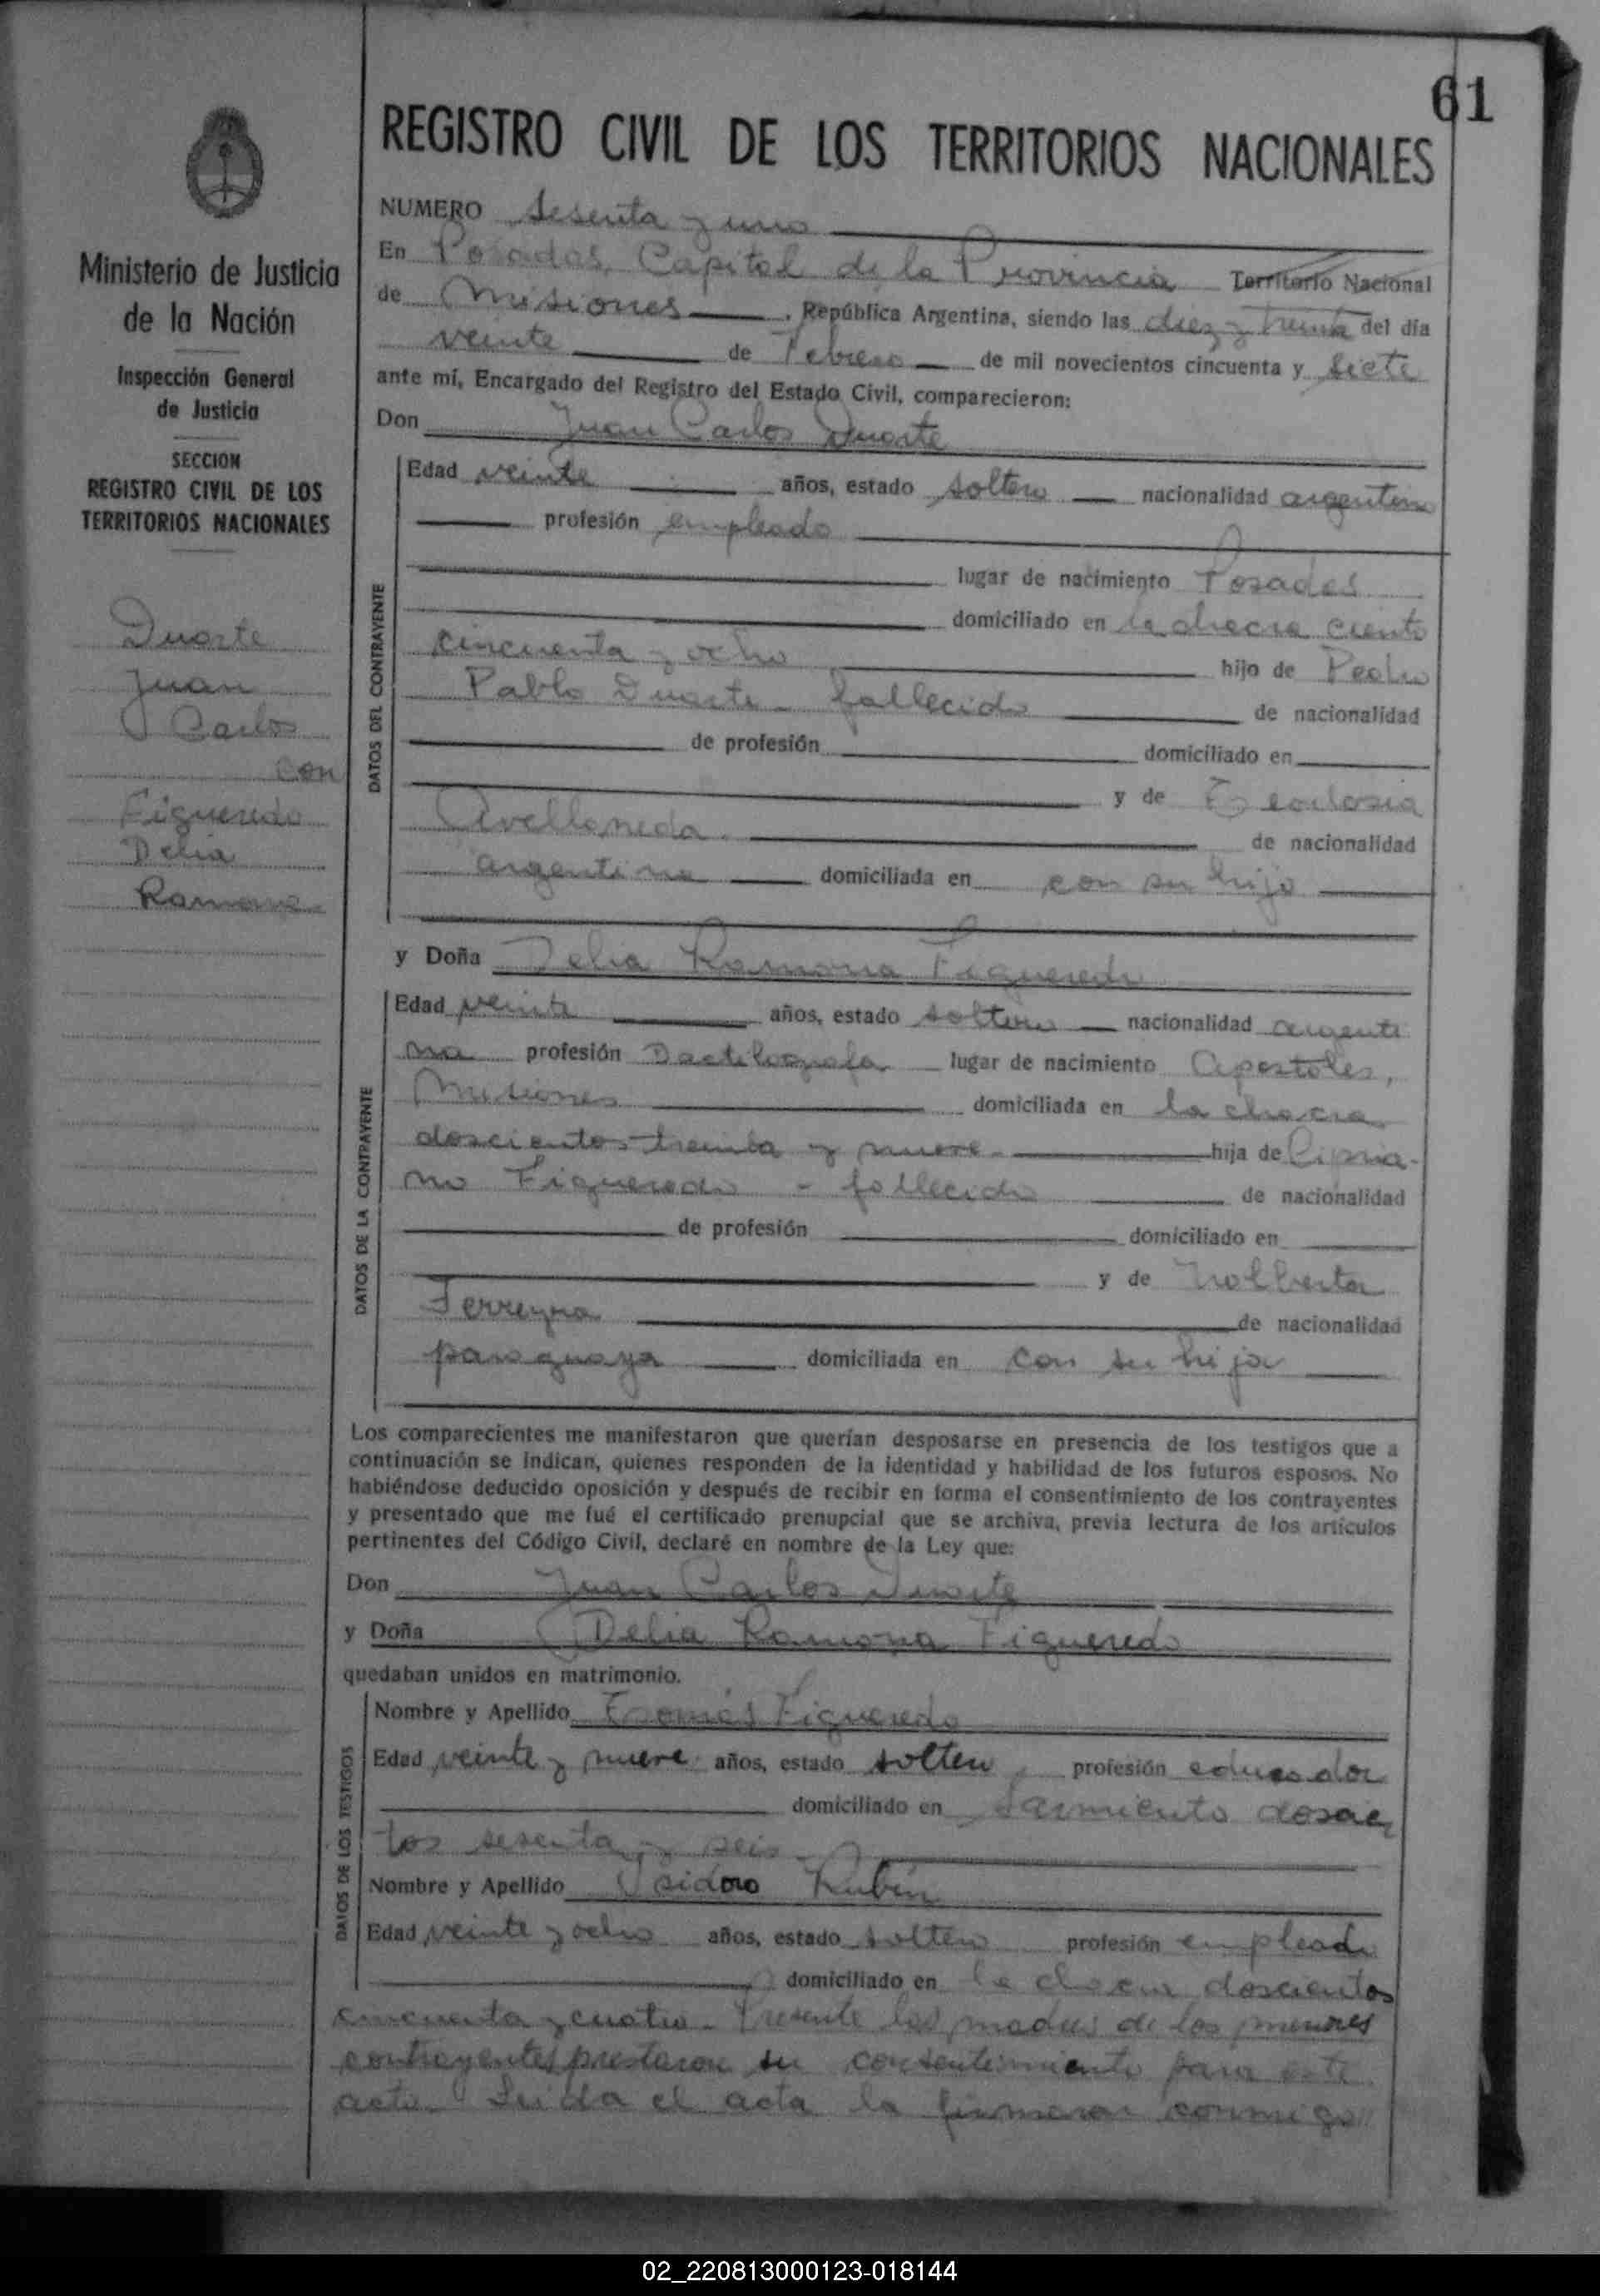 61
REGISTRO CIVIL DE LOS TERRITORIOS NACIONALES
Ministerio de Justicia
de la Nación
Inspección General
de Justicia
SECCION
REGISTRO CIVIL DE LOS
TERRITORIOS NACIONALES
Duarte
Juan
Carlos
con
Figueredo
Delia
Ramona
NUMERO sesenta y uno
En Posadas, Capital de la Provincia Territorio Nacional
de Misiones . República Argentina, siendo las diez y treinta del día
veinte de Febrero de mil novecientos cincuenta y siete
ante mí, Encargado del Registro del Estado Civil, comparecieron:
Don Juan Carlos Duarte
DATOS DEL CONTRAYENTE
Edad veinte años, estado soltero nacionalidad argentino
profesión empleado
lugar de nacimiento Posadas
domiciliado en la chacra ciento
cincuenta y ocho hijo de Pedro
Pablo Duarte - fallecido de nacionalidad
de profesión domiciliado en
y de
Avellaneda de nacionalidad
argentina domiciliada en con su hijo
y Doña Delia Ramona Figueredo
DATOS DE LA CONTRAYENTE
Edad veinte años, estado soltera nacionalidad argenti
na profesión Dactilografa lugar de nacimiento Apostoles,
Misiones domiciliada en la chacra
doscientos treinta y nueve hija de Cipria-
no Figueredo - fallecido de nacionalidad
de profesión domiciliado en
y de Nolberta
Ferreyra de nacionalidad
paraguaya domiciliada en con su hija
Los comparecientes me manifestaron que querían desposarse en presencia de los testigos que a
continuación se indican, quienes responden de la identidad y habilidad de los futuros esposos. No
habiéndose deducido oposición y después de recibir en forma el consentimiento de los contrayentes
y presentado que me fué el certificado prenupcial que se archiva, previa lectura de los artículos
pertinentes del Código Civil, declaré en nombre de la Ley que:
Don Juan Carlos Duarte
y Doña Delia Ramona Figueredo
quedaban unidos en matrimonio.
DATOS DE LOS TESTIGOS
Nombre y Apellido Figueredo
Edad veinte y nueve años, estado soltero, profesión educador
domiciliado en Sarmiento doscien
tos sesenta y seis -
Nombre y Apellido Isidoro Rubén
Edad veinte y ocho años, estado soltero profesión empleado
domiciliado en la chacra doscientos
cincuenta y cuatro - Presente las madres de los menores
contrayentes prestaron su consentimiento para este
acto - Leida el acta la firmaron conmigo
02_220813000123-018144